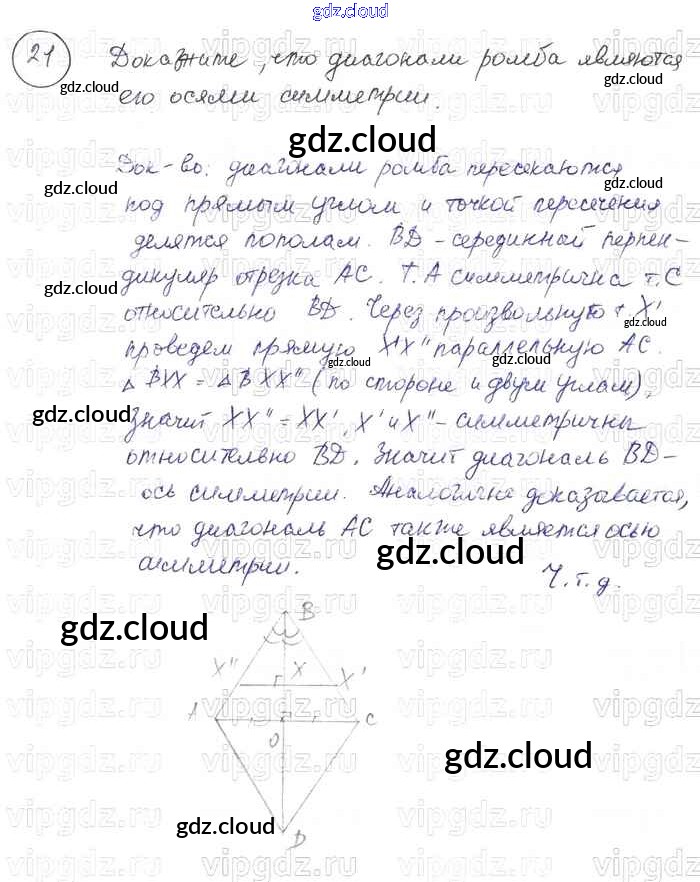 gdz.cloud
21 Докажите, что диагонали ромба являются
gdz.cloud
его осями симметрии.
gdz.cloud
Док-во: диагонали ромба пересекаются
gdz.cloud
под прямым углом и точкой пересечения
делятся пополам. BD - серединной перпен-
дикуляр отрезка AC. Т. A симметрична т. C
gdz.cloud
относительно BD. Через произвольную т. X'
gdz.cloud
проведем прямую X'X" параллельную AC.
△ BXX = △ BXX" (по стороне и двум углам),
gdz.cloud gdz.cloud
Значит XX" = XX', X' и X" - симметричны
относительно BD. Значит диагональ BD -
ось симметрии. Аналогично доказывается,
что диагональ AC также является осью
симметрии.
gdz.cloud
Ч.т.д.
gdz.cloud
B
X" X X'
A C
O
gdz.cloud
gdz.cloud
D
vipgdz.ru